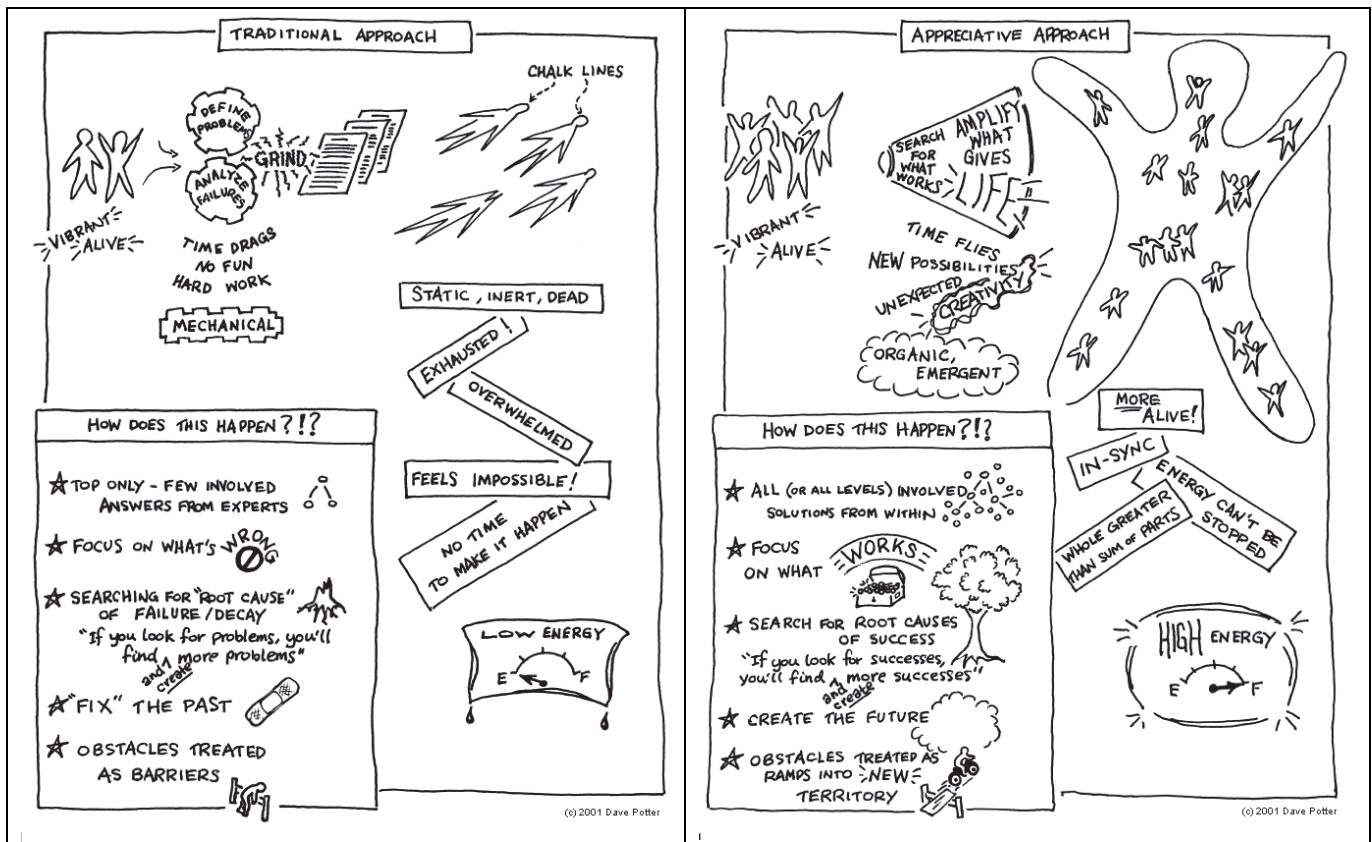 TRADITIONAL APPROACH
CHALK LINES
DEFINE
PROBLEMS
GRIND
ANALYZE
FAILURES
VIBRANT
ALIVE
TIME DRAGS
NO FUN
HARD WORK
MECHANICAL
STATIC, INERT, DEAD
EXHAUSTED!
OVERWHELMED
FEELS IMPOSSIBLE!
NO TIME
TO MAKE IT HAPPEN
LOW ENERGY
E F
HOW DOES THIS HAPPEN?!?
TOP ONLY - FEW INVOLVED
ANSWERS FROM EXPERTS
FOCUS ON WHAT'S WRONG
SEARCHING FOR "ROOT CAUSE"
OF FAILURE/DECAY
"If you look for problems, you'll
find ^ more problems"
and
create
"FIX" THE PAST
OBSTACLES TREATED
AS BARRIERS
(c) 2001 Dave Potter
APPRECIATIVE APPROACH
SEARCH
FOR
WHAT
WORKS
AMPLIFY
WHAT
GIVES
LIFE
VIBRANT
ALIVE
TIME FLIES
NEW POSSIBILITIES
UNEXPECTED
CREATIVITY
ORGANIC,
EMERGENT
MORE
ALIVE!
IN-SYNC
ENERGY CAN'T BE
STOPPED
WHOLE GREATER
THAN SUM OF PARTS
HIGH ENERGY
E F
HOW DOES THIS HAPPEN?!?
ALL (OR ALL LEVELS) INVOLVED
SOLUTIONS FROM WITHIN
FOCUS
ON WHAT
WORKS
SEARCH FOR ROOT CAUSES
OF SUCCESS
"If you look for successes,
you'll find ^ more successes"
and
create
CREATE THE FUTURE
OBSTACLES TREATED AS
RAMPS INTO NEW
TERRITORY
(c) 2001 Dave Potter